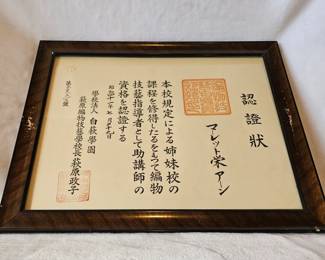 認證狀
マレット栄アーン
本校規定による姉妹校の
課程を修得したるをもつて編物
技藝指導者として助講師の
資格を認證する
昭和
學校法人 白萩學園
萩原編物技藝學校長 萩原政子